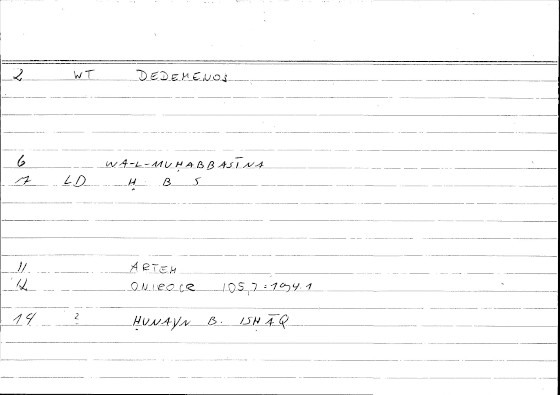 2 WT DEDEMENOS
6 WA-L-MUḤABBASĪNA
7 LD Ḥ B S
11 ARTEM
12 ONIROCR 105,7:194.1
14 2 ḤUNAYN B. ISḤĀQ